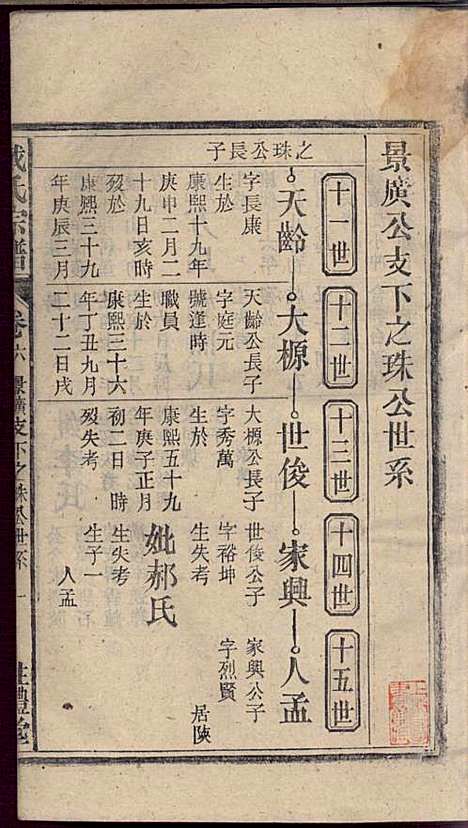 景廣公支下之珠公世系
十一世 十二世 十三世 十四世 十五世
之珠公長子
天齡 大榞 世俊 家興 人孟
字長康 天齡公長子 大榞公長子 世俊公子 家興公子
生於 字庭元 字秀萬 字裕坤 字烈賢
康熙十九年 號逢時 生於 生失考 居陝
庚申二月二 職員 康熙五十九
十九日亥時 生於 年庚子正月 妣郝氏
殁於 康熙三十六 初二日 時 生失考
康熙三十九 年丁丑九月 殁失考 生子一
年庚辰三月 二十二日戌 人孟
氏宗譜 卷六 景廣支下之珠公世系 一